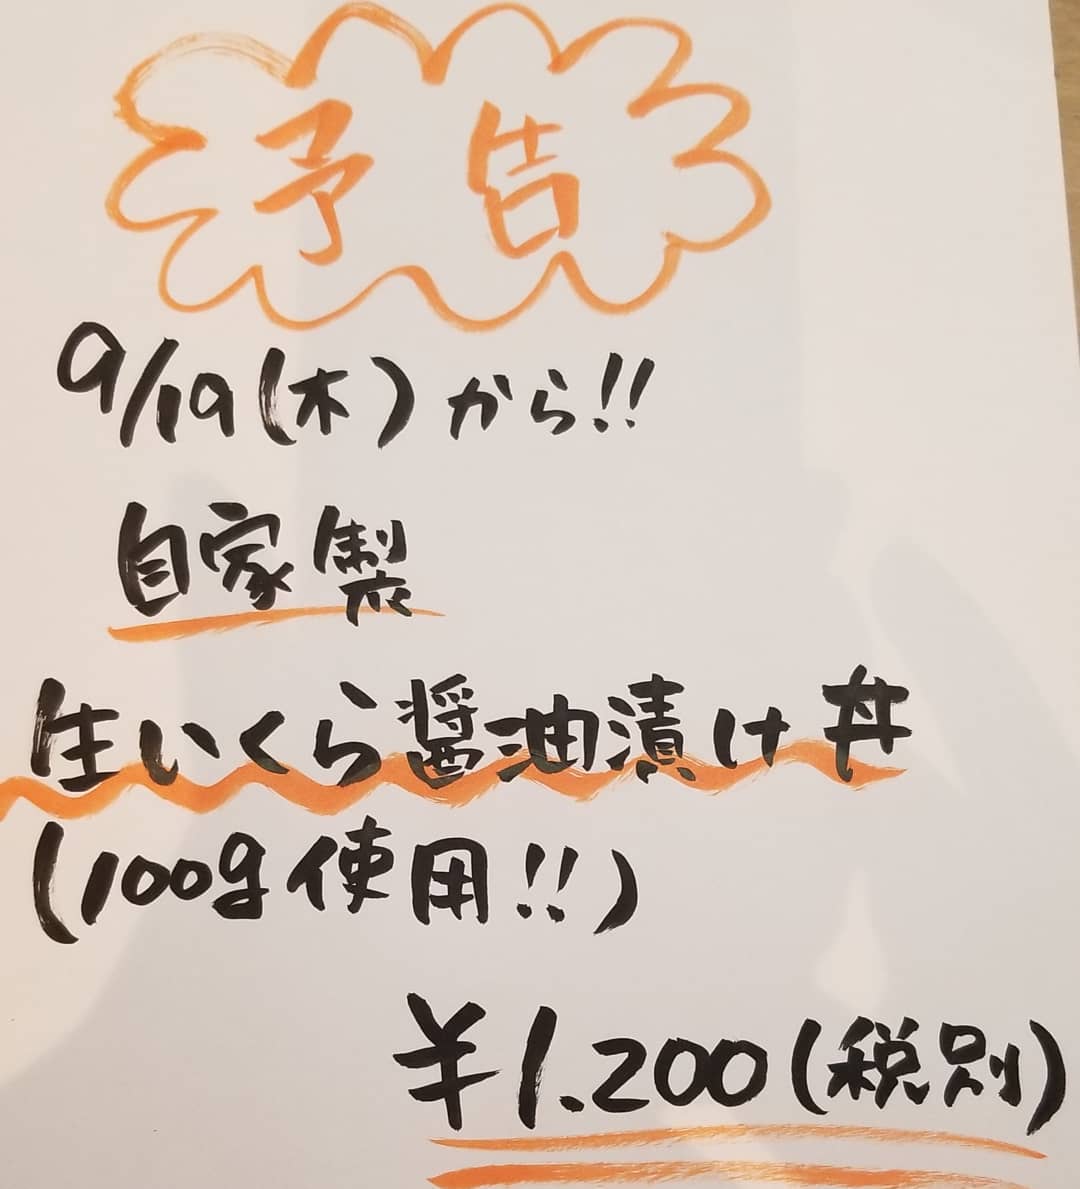 予告
9/19(木)から!!
自家製
生いくら醤油漬け丼
(100g使用!!)
¥1.200(税別)